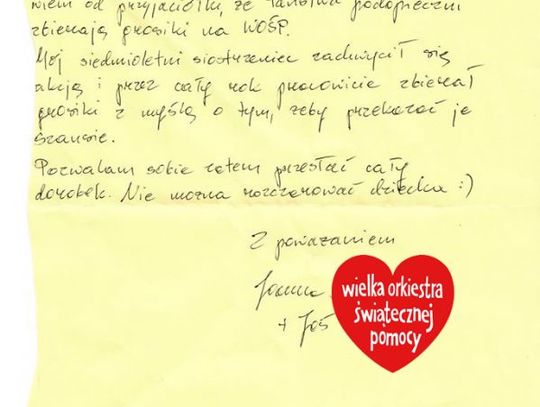 wiem od przyjaciółki, że Państwa podopieczni
zbierają grosiki na WOŚP.
Mój siedmioletni siostrzeniec zachwycił się
akcją i przez cały rok pracowicie zbierał
grosiki z myślą o tym, żeby przekazać je
Szansie.
Pozwalam sobie zatem przesłać cały
dorobek. Nie można rozczarować dziecka :)
Z poważaniem
Joanna
+ Jaś
wielka orkiestra
świątecznej
pomocy